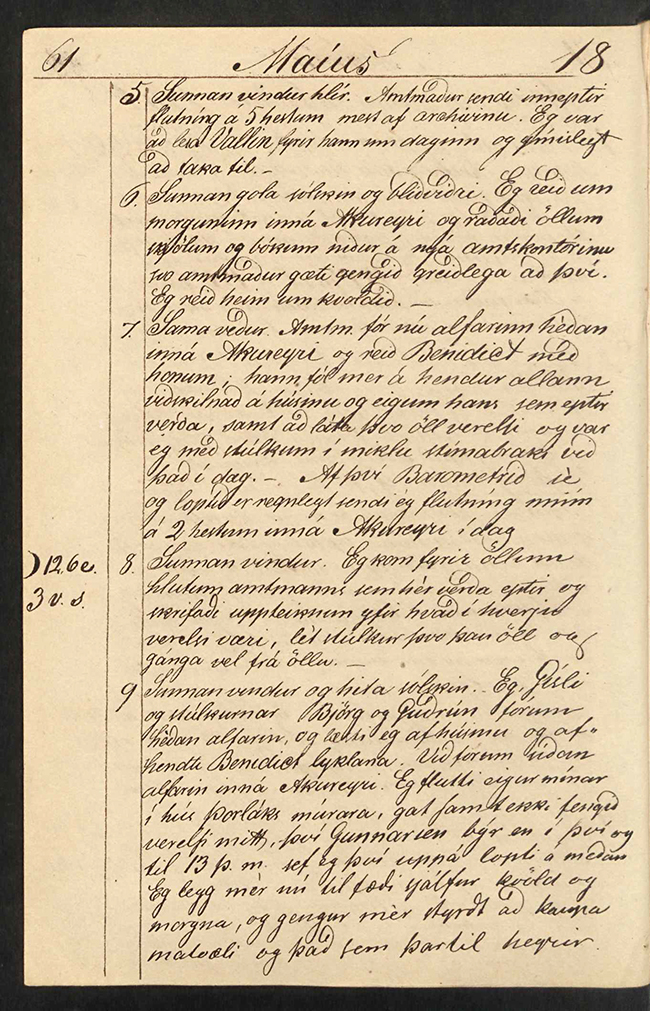 61 Maíus 18
5. Sunnan vindur hlír. Amtmadur sendi inneptir
flutning á 5 hestum mest af archivinu. Eg var
ad lesa Vallin fyrir hann um daginn og ímislegt
ad taka til. -
6. Sunnan gola sólskin og blídvidri. Eg reid um
morguninn inná Akureyri og radadi öllum
skjölum og bókum nidur á nýa amtskontórinu
svo amtmadur gæti gengid greidlega ad því.
Eg reid heim um kvöldid. -
7. Sama vedur. Amtm. fór nú alfarinn hédan
inná Akureyri og reid Benidict med
honum; hann fól mér á hendur allann
vidskilnad á húsinu og eigum hans sem eptir
verda, samt ad láta þvo öll verelsi og var
eg med stúlkum í miklu stímabraki vid
þad í dag. - Af því Barometrid sè
og loptid er regnlegt sendi eg flutning minn
á 2 hestum inná Akureyri í dag
) 12,6e.
3 v. s.
8. Sunnan vindur. Eg kom fyrir öllum
hlutum amtmanns sem hér verda eptir og
skrifadi uppteiknun yfir hvad í hverju
verelsi væri, lét stúlkur þvo þau öll og
gánga vel frá öllu. -
9 Sunnan vindur og hita sólskin. Eg, Gísli
og stúlkurnar Björg og Gudrún fórum
hédan alfarin, og læsti eg af húsinu og af-
hendti Benedict lyklana. Vid fórum sídan
alfarin inná Akureyri. Eg flutti eigur mínar
í hús Þorláks múrara, gat samt ekki fengid
verelsi mitt, því Gunnarsen býr en í því og
til 13 þ. m. sef eg því uppá lopti á medan
Eg legg mér nú til fædi sjálfur kvöld og
morgna, og gengur mér styrdt ad kaupa
matvæli og þad sem þar til heyrir.